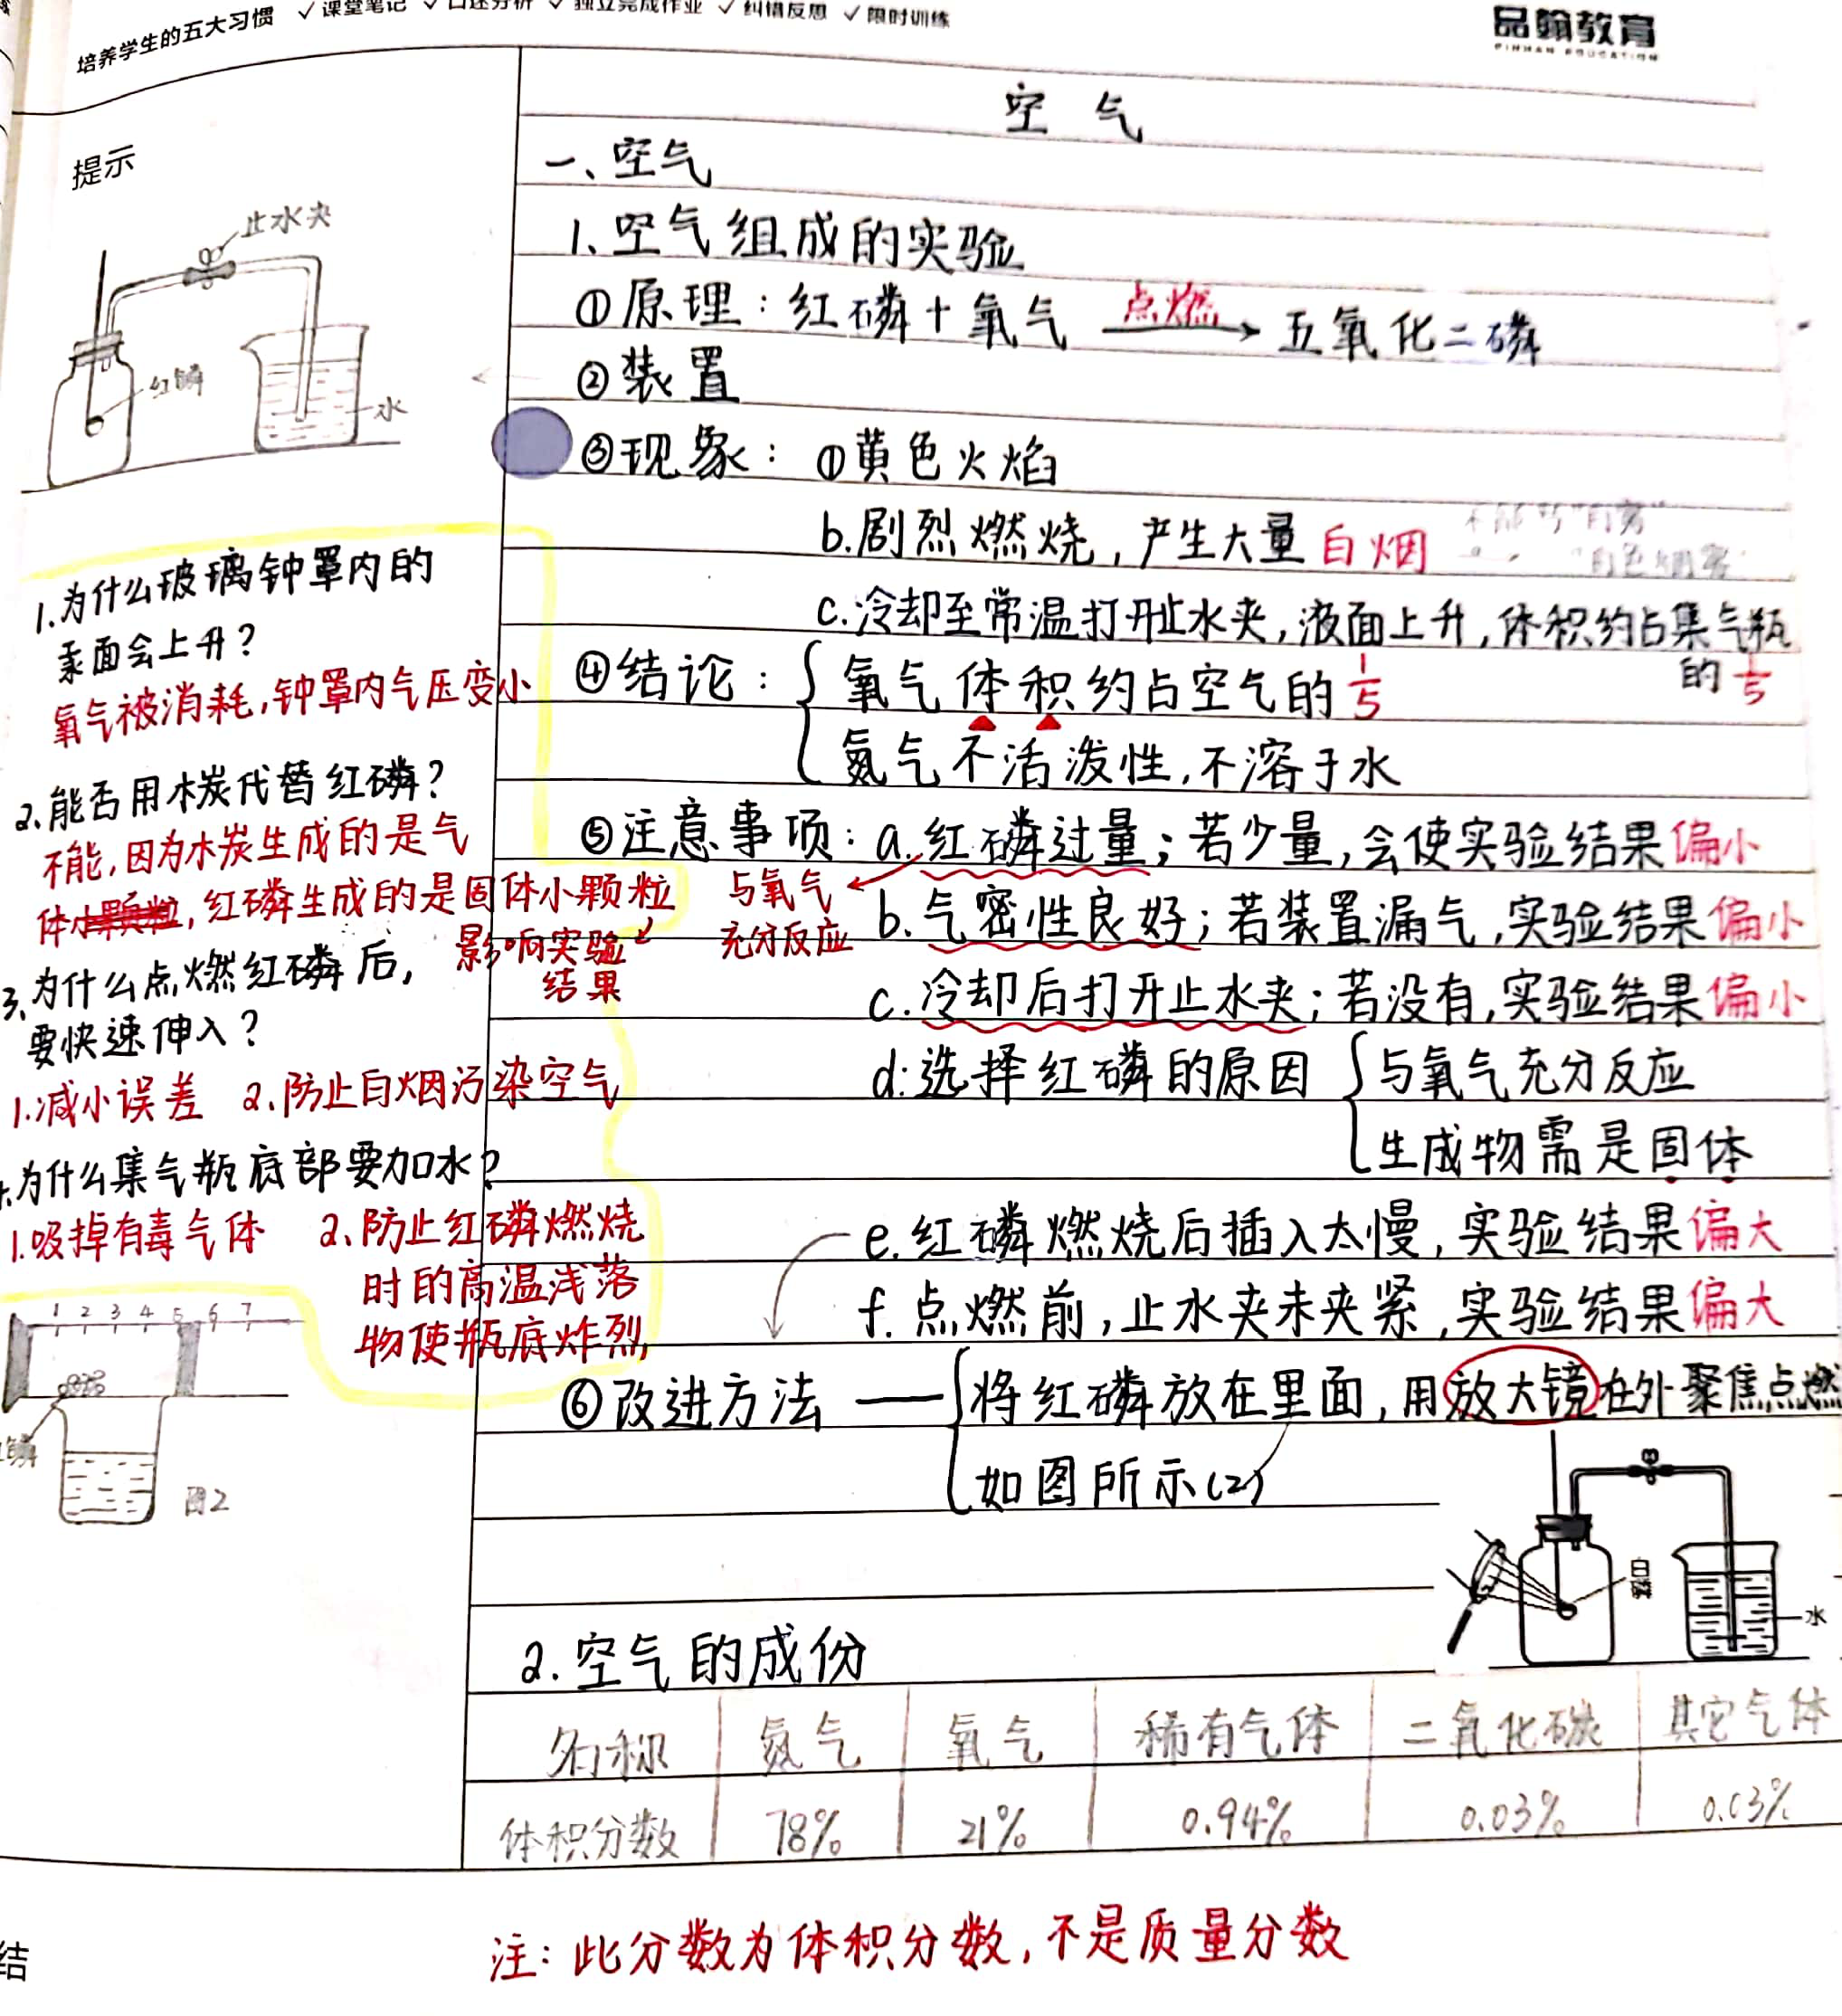 培养学生的五大习惯 ✓课堂笔记 ✓口述分析 ✓独立完成作业 ✓纠错反思 ✓限时训练
品翰教育
PINHAN EDUCATION
提示
止水夹
红磷
水
1.为什么玻璃钟罩内的
汞面会上升?
氧气被消耗,钟罩内气压变小
2.能否用木炭代替红磷?
不能,因为木炭生成的是气
体小颗粒,红磷生成的是固体小颗粒
影响实验
结果
3.为什么点燃红磷后,
要快速伸入?
1.减小误差 2.防止白烟污染空气
为什么集气瓶底部要加水?
1.吸掉有毒气体 2.防止红磷燃烧
时的高温浅落
物使瓶底炸烈
1 2 3 4 5 6 7
磷
图2
空气
一、空气
1、空气组成的实验
①原理:红磷+氧气 点燃→ 五氧化二磷
②装置
③现象:①黄色火焰
b.剧烈燃烧,产生大量白烟
c.冷却至常温打开止水夹,液面上升,体积约占集气瓶
的1/5
④结论:{氧气体积约占空气的1/5
氮气不活泼性,不溶于水
⑤注意事项:a.红磷过量;若少量,会使实验结果偏小
与氧气
充分反应
b.气密性良好;若装置漏气,实验结果偏小
c.冷却后打开止水夹;若没有,实验结果偏小
d:选择红磷的原因{与氧气充分反应
生成物需是固体
e.红磷燃烧后插入太慢,实验结果偏大
f.点燃前,止水夹未夹紧,实验结果偏大
⑥改进方法——{将红磷放在里面,用放大镜在外聚焦点燃
如图所示(2)
白磷
水
2.空气的成份
名称 氮气 氧气 稀有气体 二氧化碳 其它气体
体积分数 78% 21% 0.94% 0.03% 0.03%
注:此分数为体积分数,不是质量分数
结